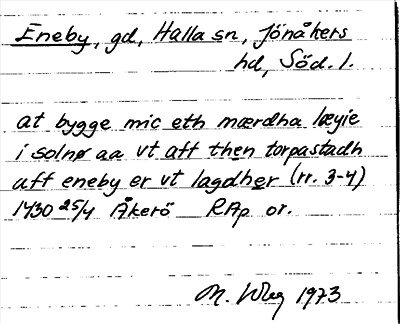 Eneby, gd, Halla sn, Jönåkers
hd, Söd. l.
at bygge mic eth mærdha læyie
i solnø aa vt aff then torpastadh
aff eneby er vt lagdher (rr. 3-4)
1430 25/4 Åkerö RAp. or.
M. 1973